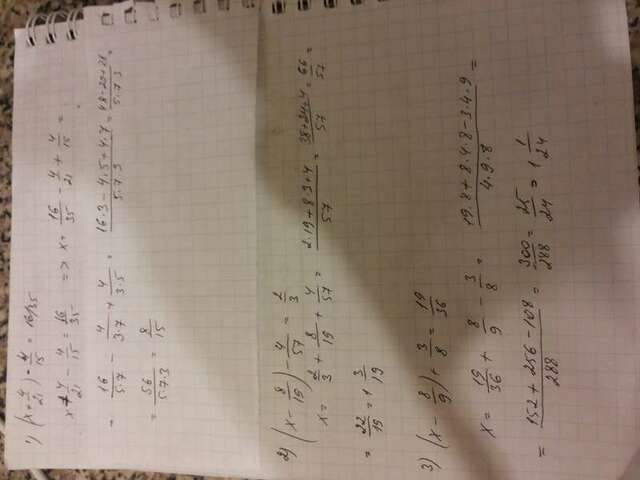 1) (x + 4/21) - 4/15 = 16/35
x + 4/21 - 4/15 = 16/35 => x = 16/35 - 4/21 + 4/15 =
= 16/5·7 - 4/3·7 + 4/3·5 = 16·3-4·5+4·7/5·7·3 = 48-20+28/5·7·3 =
= 56/5·7·3 = 8/15
2) (x - 8/19) - 4/57 = 2/3
x = 2/3 + 8/19 + 4/57 = 2·19+8·3+4/57 = 38+24+4/57 = 66/57 =
= 22/19 = 1 3/19
3) (x - 8/9) + 3/8 = 19/36
x = 19/36 + 8/9 - 3/8 = 19·8+8·4·8-3·4·9/4·9·8 =
= 152+256-108/288 = 300/288 = 25/24 = 1 1/24